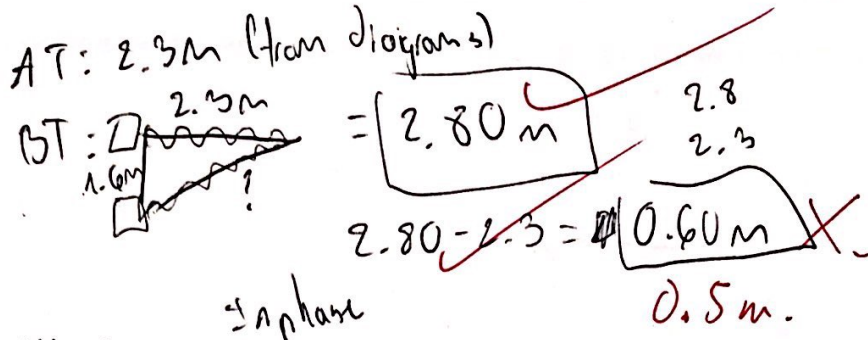 AT: 2.3m (from diagrams)
2.3m
BT: = 2.80 m
1.6m
?
2.8
2.3
2.80-2.3 = 0.60m
0.5m.
In phase